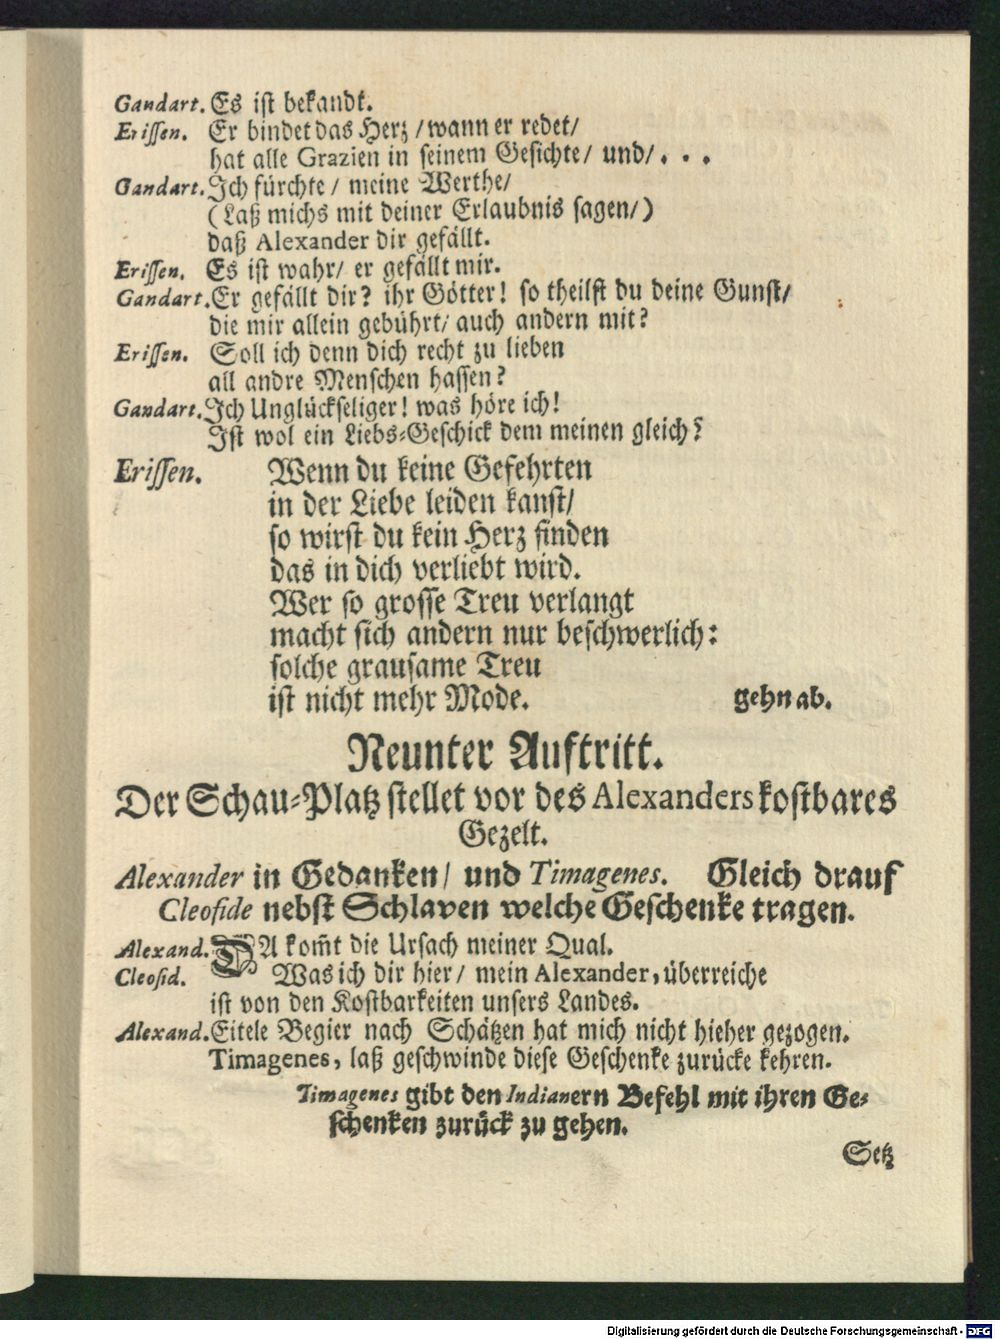 Gandart. Es ist bekandt.
Erissen. Er bindet das Herz / wann er redet/
hat alle Grazien in seinem Gesichte/ und/. . .
Gandart. Ich fürchte / meine Werthe/
(Laß michs mit deiner Erlaubnis sagen/)
daß Alexander dir gefällt.
Erissen. Es ist wahr/ er gefällt mir.
Gandart. Er gefällt dir? ihr Götter! so theilst du deine Gunst/
die mir allein gebührt/ auch andern mit?
Erissen. Soll ich denn dich recht zu lieben
all andre Menschen hassen?
Gandart. Ich Unglückseliger! was höre ich!
Ist wol ein Liebs-Geschick dem meinen gleich?
Erissen. Wenn du keine Gefehrten
in der Liebe leiden kanst/
so wirst du kein Herz finden
das in dich verliebt wird.
Wer so grosse Treu verlangt
macht sich andern nur beschwerlich:
solche grausame Treu
ist nicht mehr Mode. gehn ab.
Neunter Auftritt.
Der Schau-Platz stellet vor des Alexanders kostbares
Gezelt.
Alexander in Gedanken/ und Timagenes. Gleich drauf
Cleofide nebst Schlaven welche Geschenke tragen.
Alexand. DA kom̃t die Ursach meiner Qual.
Cleofid. Was ich dir hier/ mein Alexander, überreiche
ist von den Kostbarkeiten unsers Landes.
Alexand. Eitele Begier nach Schätzen hat mich nicht hieher gezogen.
Timagenes, laß geschwinde diese Geschenke zurücke kehren.
Timagenes gibt den Indianern Befehl mit ihren Ge-
schenken zurück zu gehen.
Setz
Digitalisierung gefördert durch die Deutsche Forschungsgemeinschaft - DFG